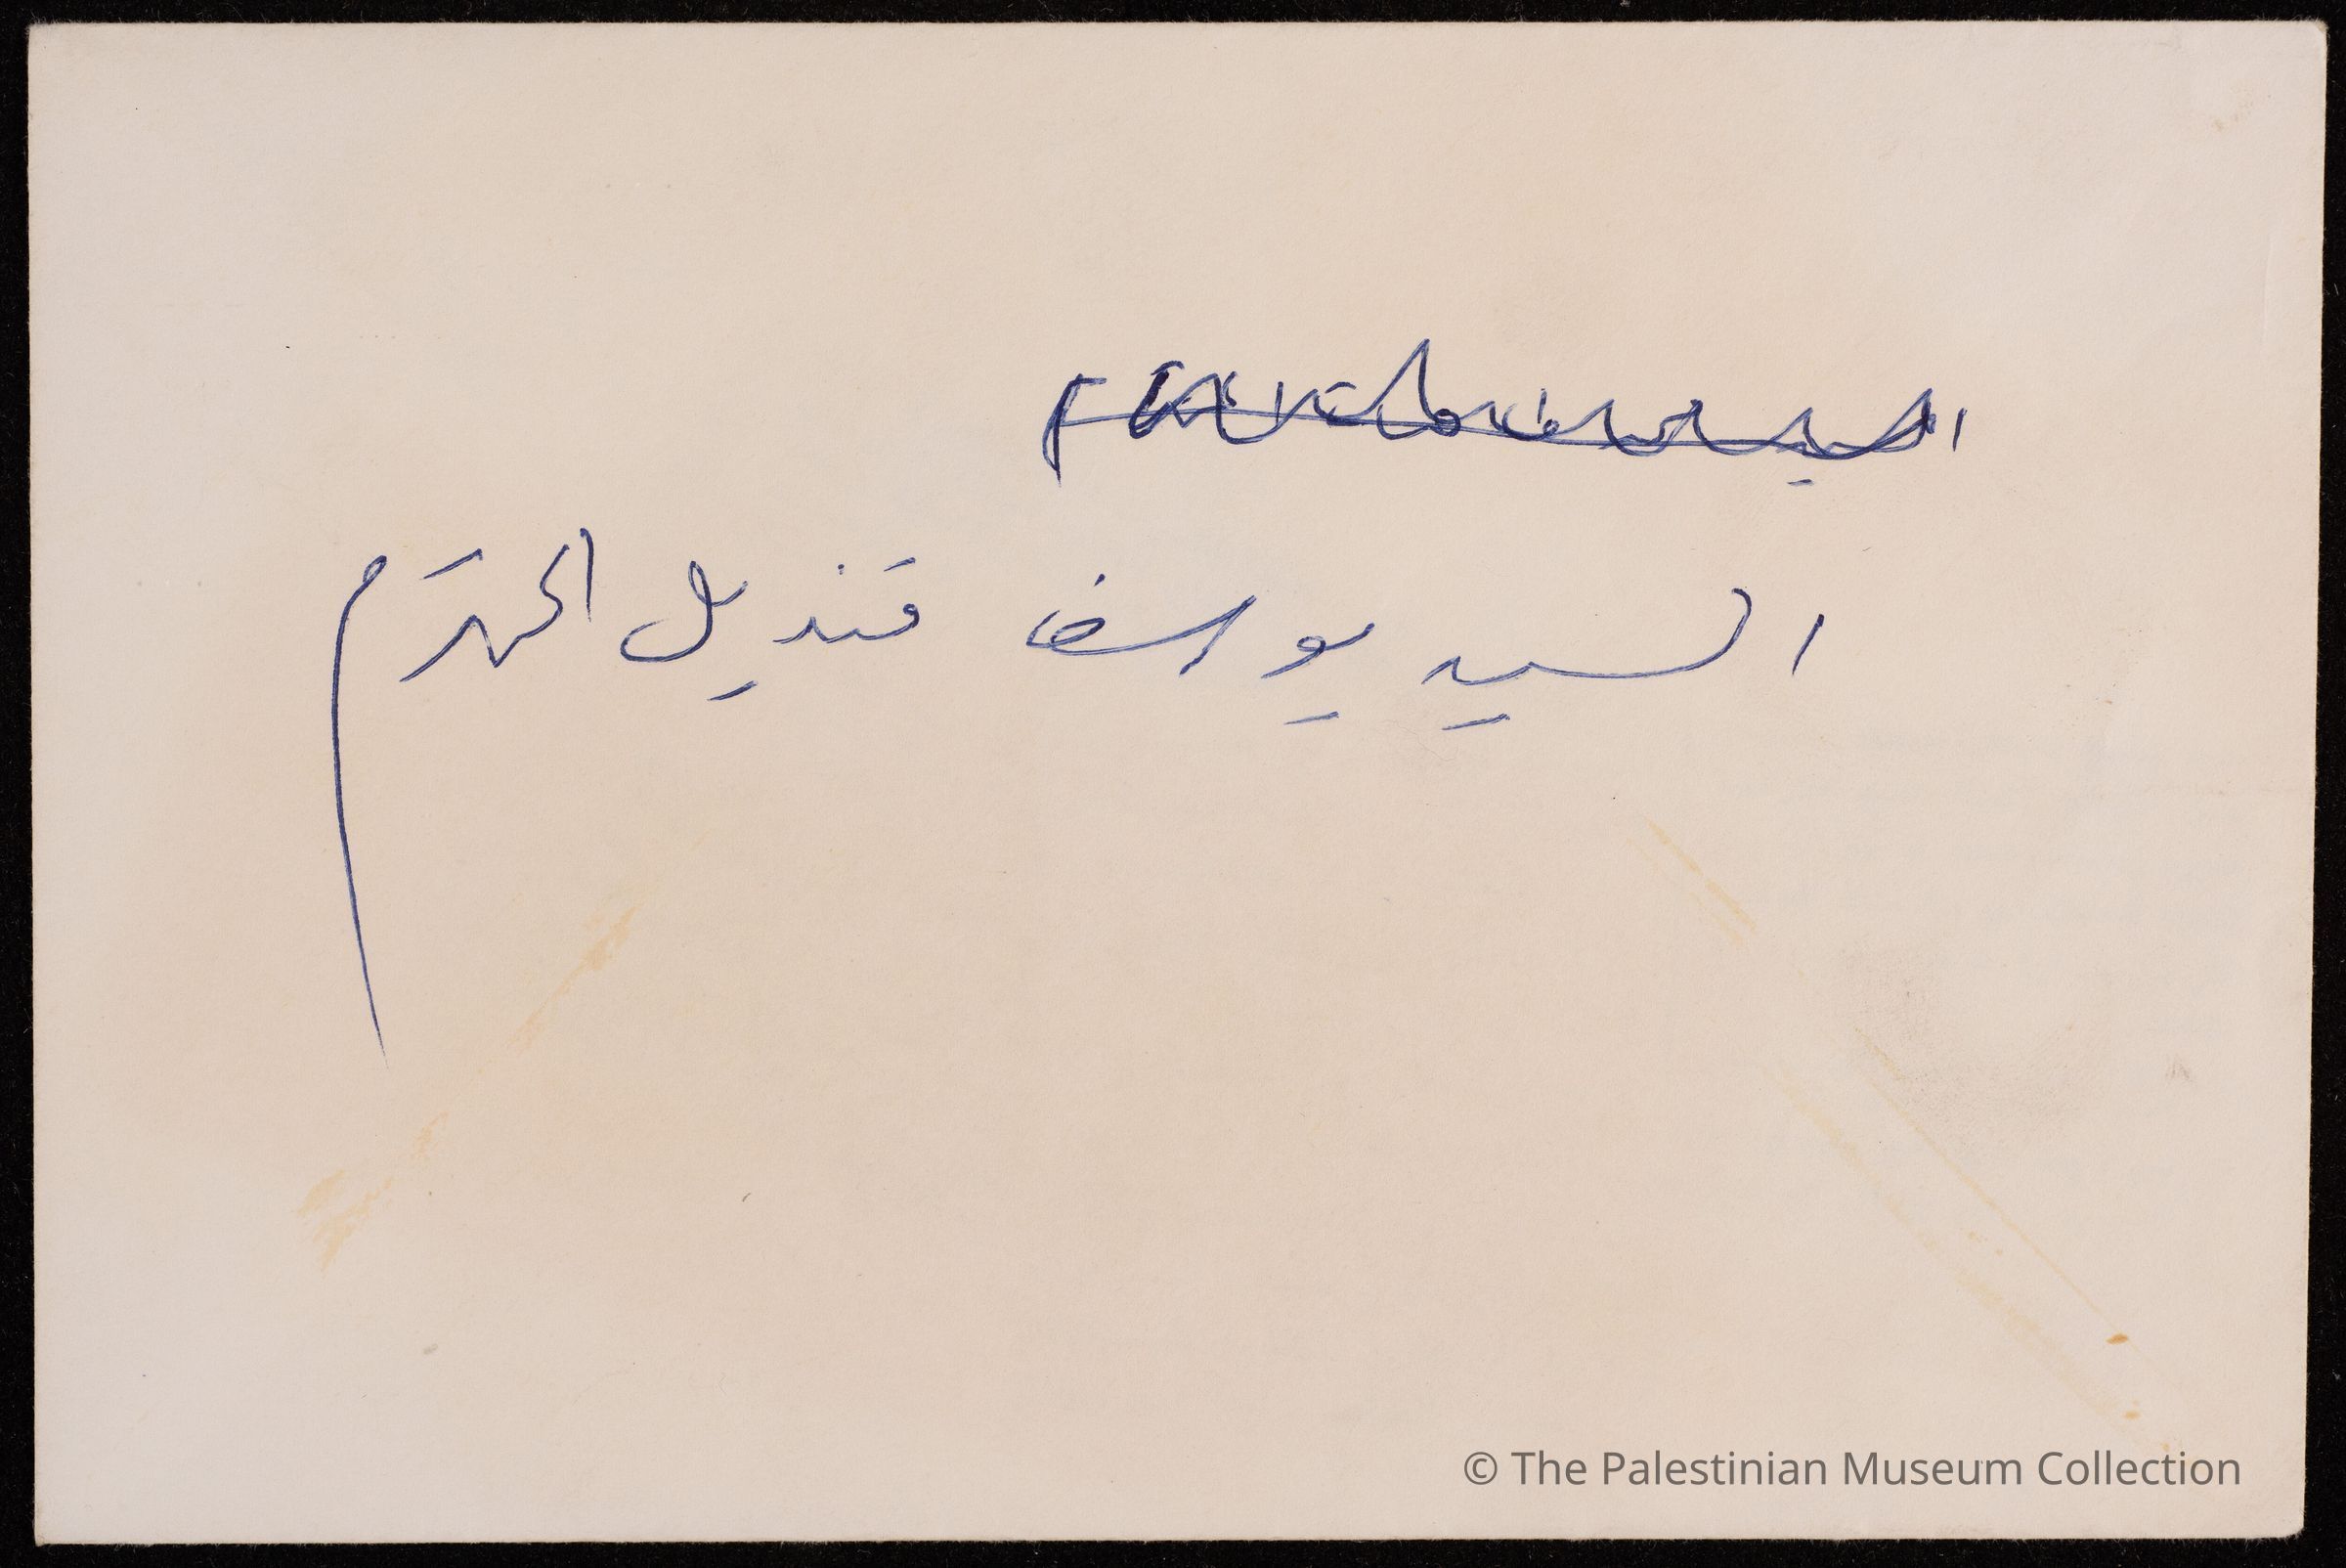 السيد يوسف قنديل المحترم
© The Palestinian Museum Collection